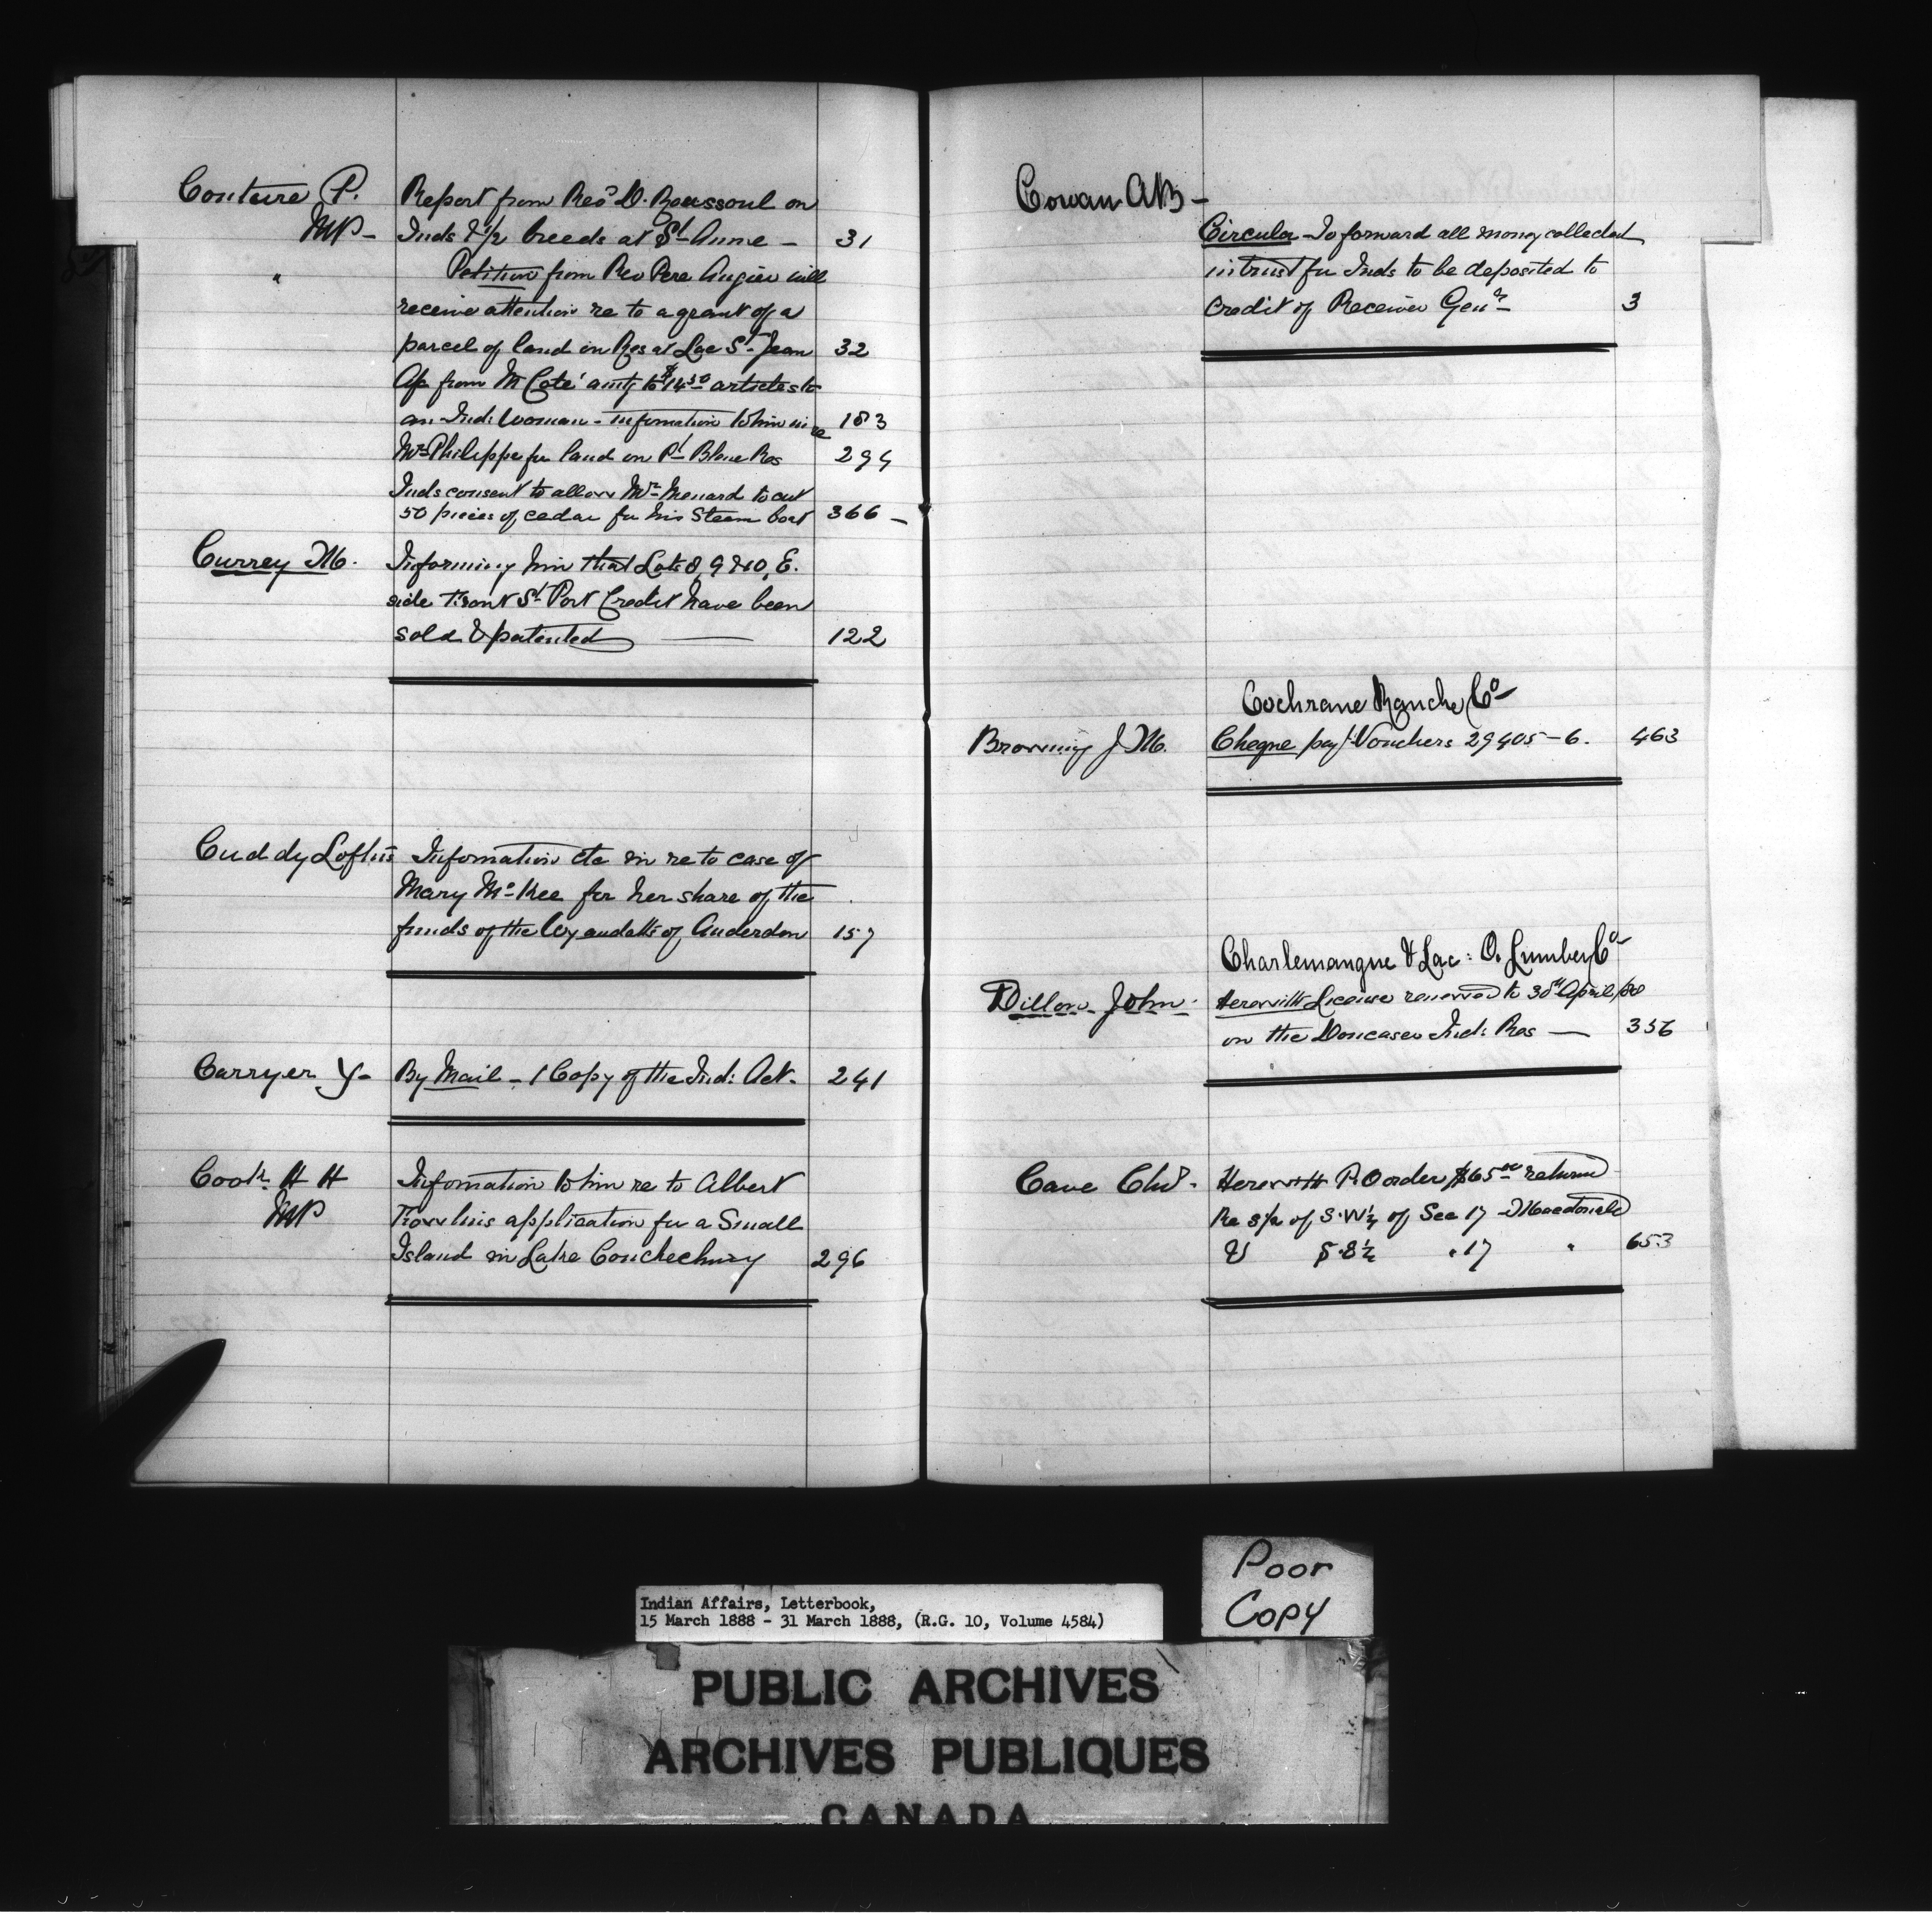 Couture P.
MP -
Report from Revd D. Roussoul on
Inds & 1/2 breeds at St Anne - 31
" Petition from Rev Pere Angier will
receive attention re to a grant of a
parcel of land on Res at Lac St Jean 32
Ap from M Coté amtg to $14.50 articles to
an Ind: Woman - Information to him in re 183
Mr Philippe for land on Pt Bleue Res 294
Inds consent to allow Mr Menard to cut
50 pieces of cedar for his Steam boat 366 -
Currey M. Informing him that Lots 8, 9 & 10, E.
side Front St Port Credit have been
sold & patented 122
Cuddy Loftus Information etc in re to case of
Mary McKee for her share of the
funds of the Wyandotts of Anderdon 157
Carryer Y - By Mail - 1 Copy of the Ind: Act - 241
Cook H H
MP
Information to him re to Albert
application for a Small
Island in Lake Couchiching 296
Cowan AB -
Circular - To forward all money collected
in trust for Inds to be deposited to
credit of Receiver Genl 3
Cochrane Ranche Co
Browning J M. Cheque pay/ Vouchers 29405-6. 463
Charlemangue & Lac: O. Lumber Co
Dillon John - Herewith License renewed to 30th April/88
on the Doncaser Ind: Res - 356
Cave Chs - Herewith P.O order $65.00 return
Re s/e of S.W 1/4 of Sec 17 Macdonald
& S.E 1/4 " 17 " 653
Poor
Copy
Indian Affairs, Letterbook,
15 March 1888 - 31 March 1888, (R.G. 10, Volume 4584)
PUBLIC ARCHIVES
ARCHIVES PUBLIQUES
CANADA